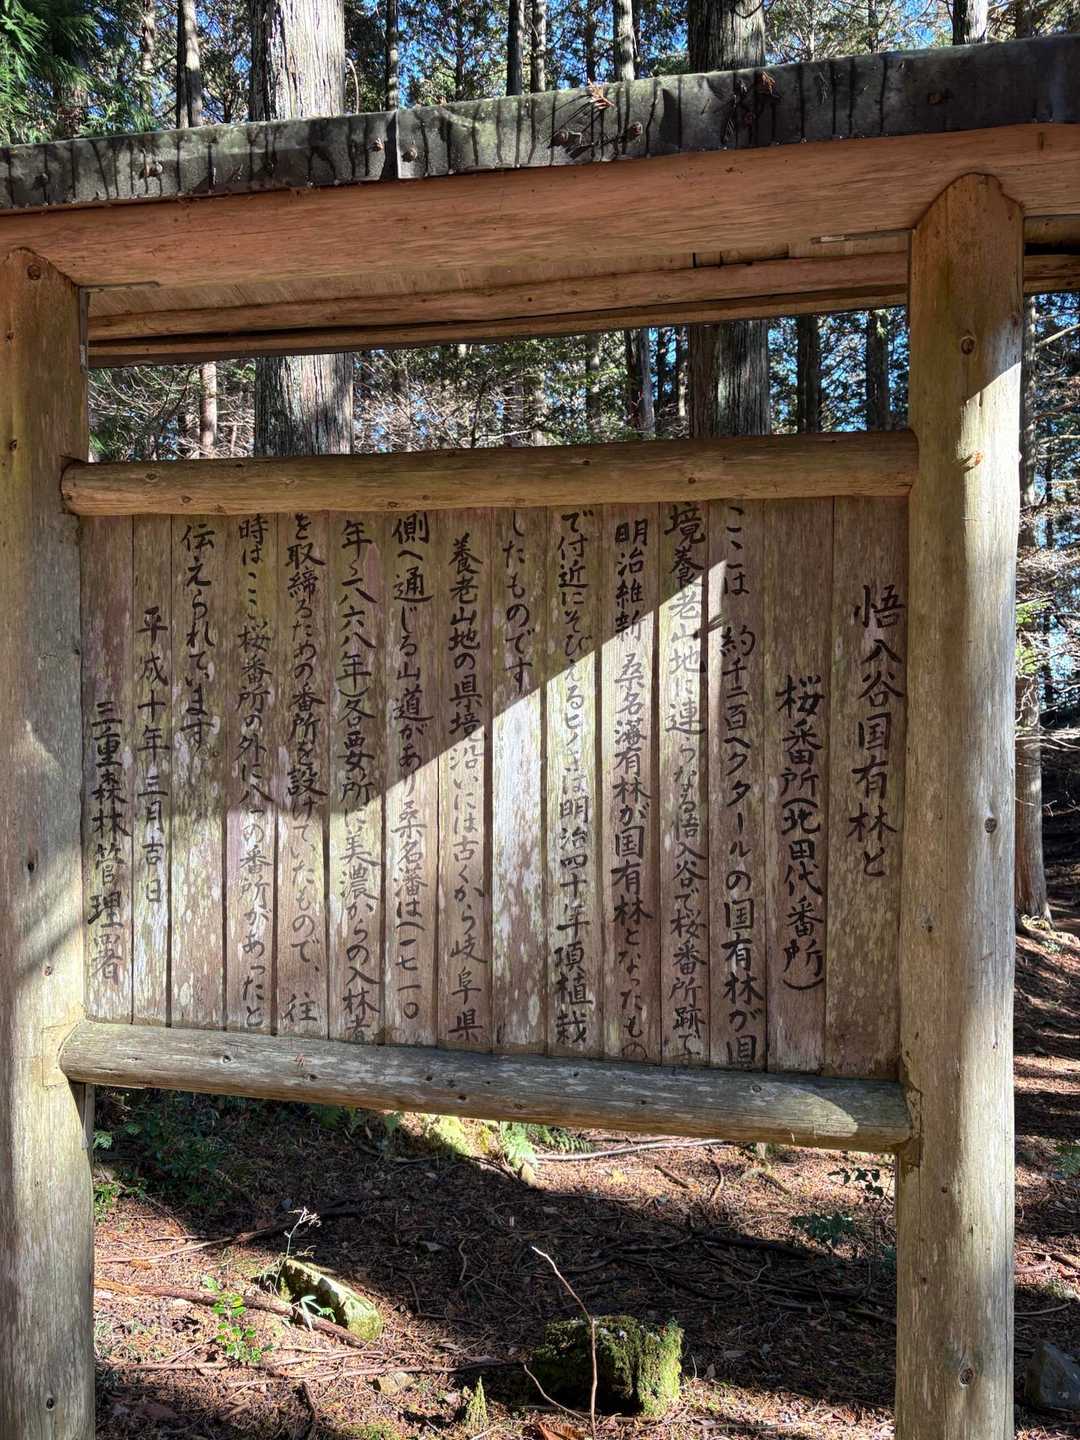 悟入谷国有林と
桜番所(北田代番所)
ここは 約千二百ヘクタールの国有林が
境養老山地に連らなる悟入谷で桜番所跡で
明治維新 桑名藩有林が国有林となったもの
で付近にそびえるヒノキは明治四十年頃植栽
したものです
養老山地の県境沿いには古くから岐阜県
側へ通じる山道があり桑名藩は(一七一〇
年~一八六八年)各要所に美濃からの入林者
を取締るための番所を設けて、たもので、往
時はここ桜番所の外に八つの番所があったと
伝えられています。
平成十年三月吉日
三重森林管理署